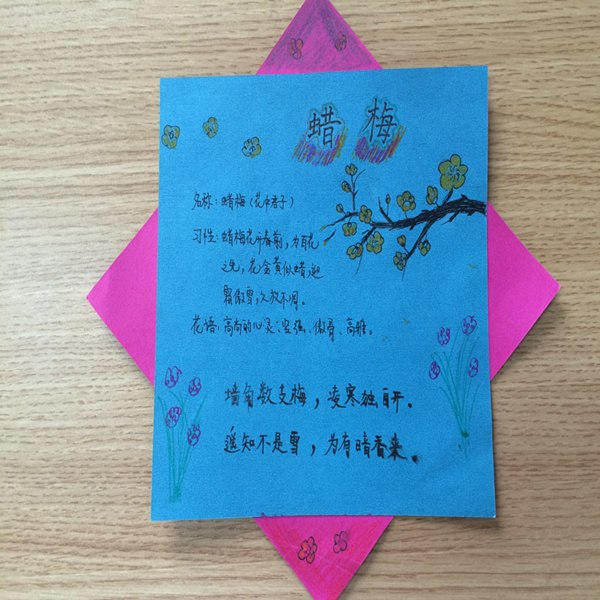 蜡梅
名称：蜡梅（花中君子）
习性：蜡梅花开春前，为百花
之先，花金黄似蜡，迎
霜傲雪，久放不凋。
花语：高尚的心灵：坚强、傲骨、高雅。
墙角数支梅，凌寒独自开。
遥知不是雪，为有暗香来。